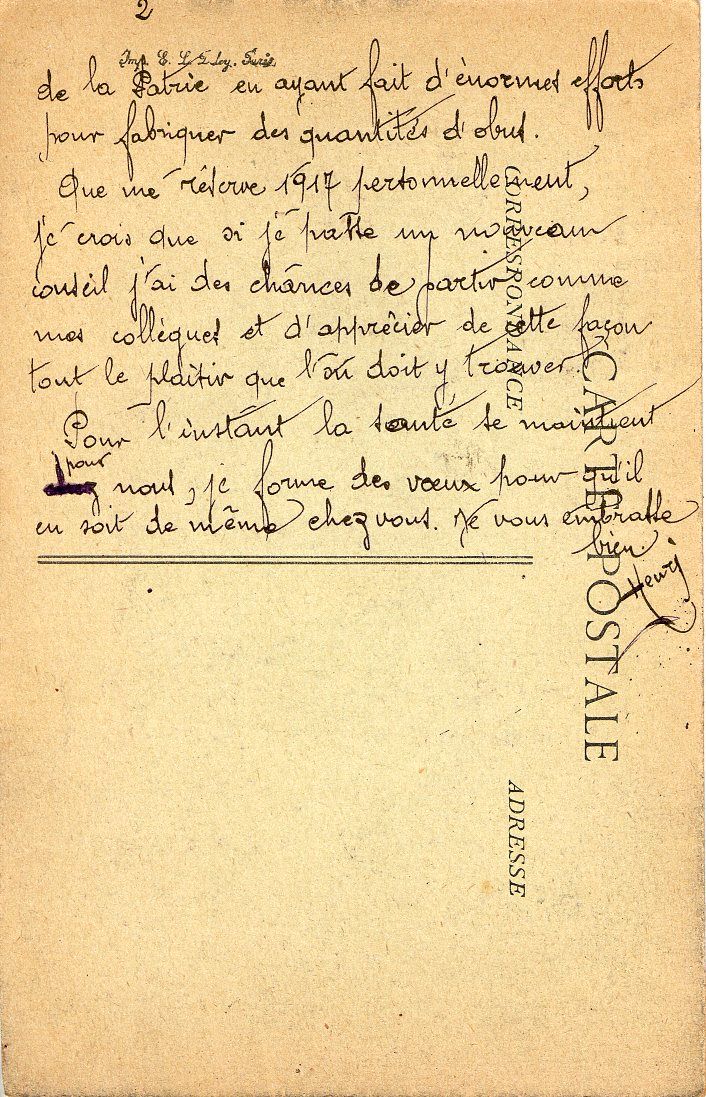 2
Imp. E. Le Deley. Paris.
de la Patrie en ayant fait d'énormes efforts
pour fabriquer des quantités d'obus.
Que me réserve 1917 personnellement,
je crois que si je passe un nouveau
conseil j'ai des chances de partir comme
mes collègues et d'apprécier de cette façon
tout le plaisir que l'on doit y trouver.
Pour l'instant la santé se maintient
pour
nous, je forme des vœux pour qu'il
en soit de même chez vous. Je vous embrasse
bien.
Henri
CORRESPONDANCE
CARTE POSTALE
ADRESSE